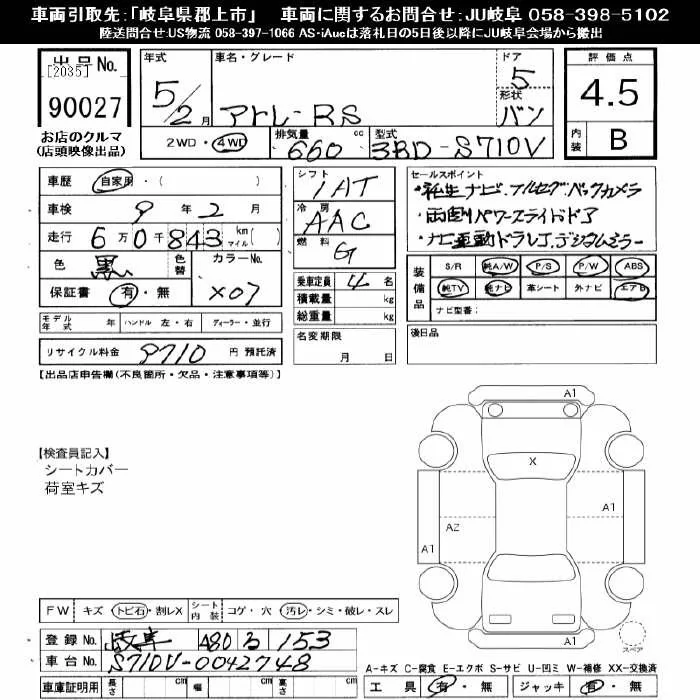 車両引取先:「岐阜県郡上市」 車両に関するお問合せ:JU岐阜 058-398-5102
陸送問合せ:US物流 058-397-1066 AS・iAucは落札日の5日後以降にJU岐阜会場から搬出
出品No.
[2035]
90027
お店のクルマ
(店頭映像出品)
年式
5/2月
車名・グレード
アトレーRS
ドア
5
形状
バン
2WD・4WD
排気量 660 cc
型式 3BD-S710V
評価点
4.5
内装 B
車歴 自家用・( )
車検 9年2月
走行 6万0千843 km マイル( )
色 黒
色替
カラーNo. X07
保証書 有・無
モデル年式 年 ハンドル 左・右 ディーラー・並行
リサイクル料金 9710 円 預託済
シフト IAT
冷房 AAC
燃料 G
乗車定員 4名
積載量 kg
総重量 kg
名変期限
月 日
セールスポイント
・純正ナビ.フルセグ.バックカメラ
・両側パワースライドドア
・ナビ連動ドラレコ.デジタルミラー
装備品
S/R 純A/W P/S P/W ABS
純TV 純ナビ 革シート 外ナビ エアB
ナビ型番:
後日品
【出品店申告欄(不良箇所・欠品・注意事項等)】
【検査員記入】
シートカバー
荷室キズ
A1
X
A2
A1
A1
A1
スペア
FW キズ・トビ石・割レX シート内装 コゲ・穴 汚レ・シミ・破レ・スレ
登録No. 岐阜 480 る 153
車台No. S710V-0042748
車庫証明用 長さ cm 幅 cm 高さ cm
A-キズ C-腐食 E-エクボ S-サビ U-凹ミ W-補修 XX-交換済
工具 有・無 ジャッキ 有・無